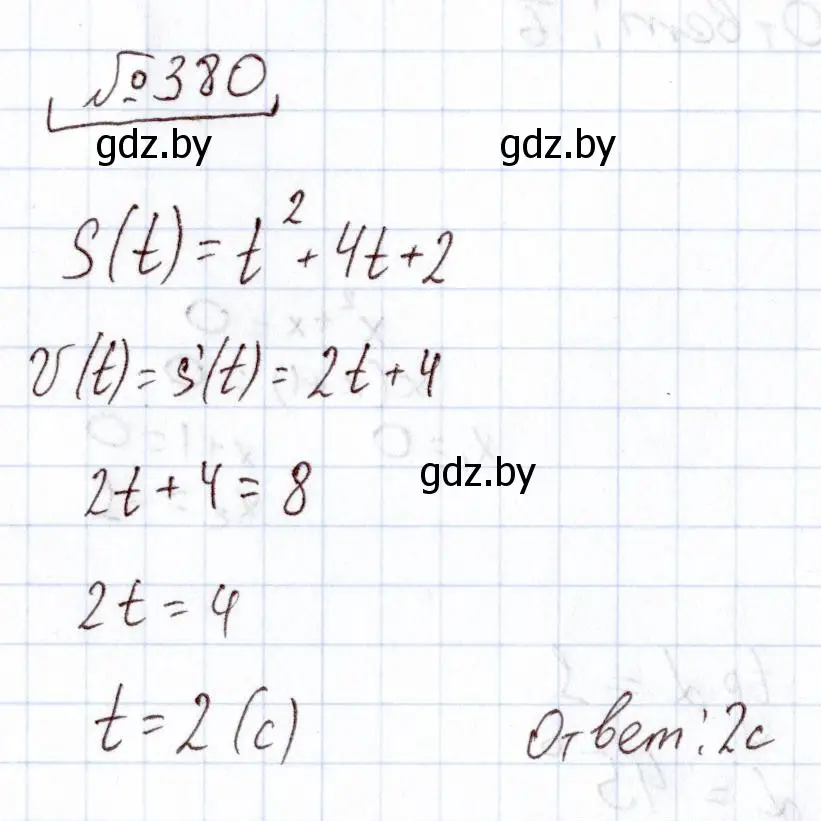 №380
gdz.by gdz.by
S(t) = t² + 4t + 2
v(t) = s'(t) = 2t + 4
gdz.by
2t + 4 = 8
2t = 4
t = 2 (с)
Ответ: 2с